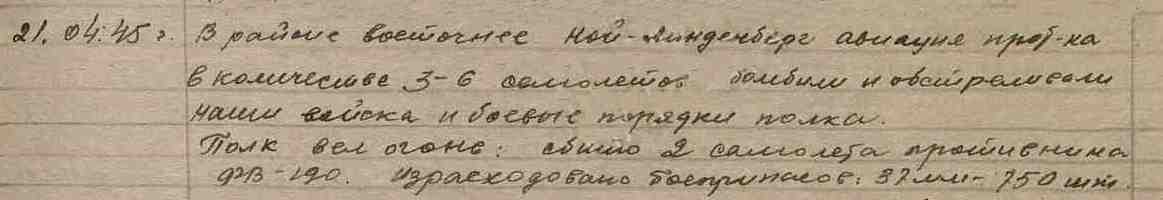 21.04.45 г. В районе восточнее Ной-Линденберг авиация прот-ка
в количестве 3-6 самолетов бомбили и обстреливали
наши войска и боевые порядки полка.
Полк вел огонь: сбито 2 самолета противника
ФВ-190. Израсходовано боеприпасов: 37 мм - 750 шт.